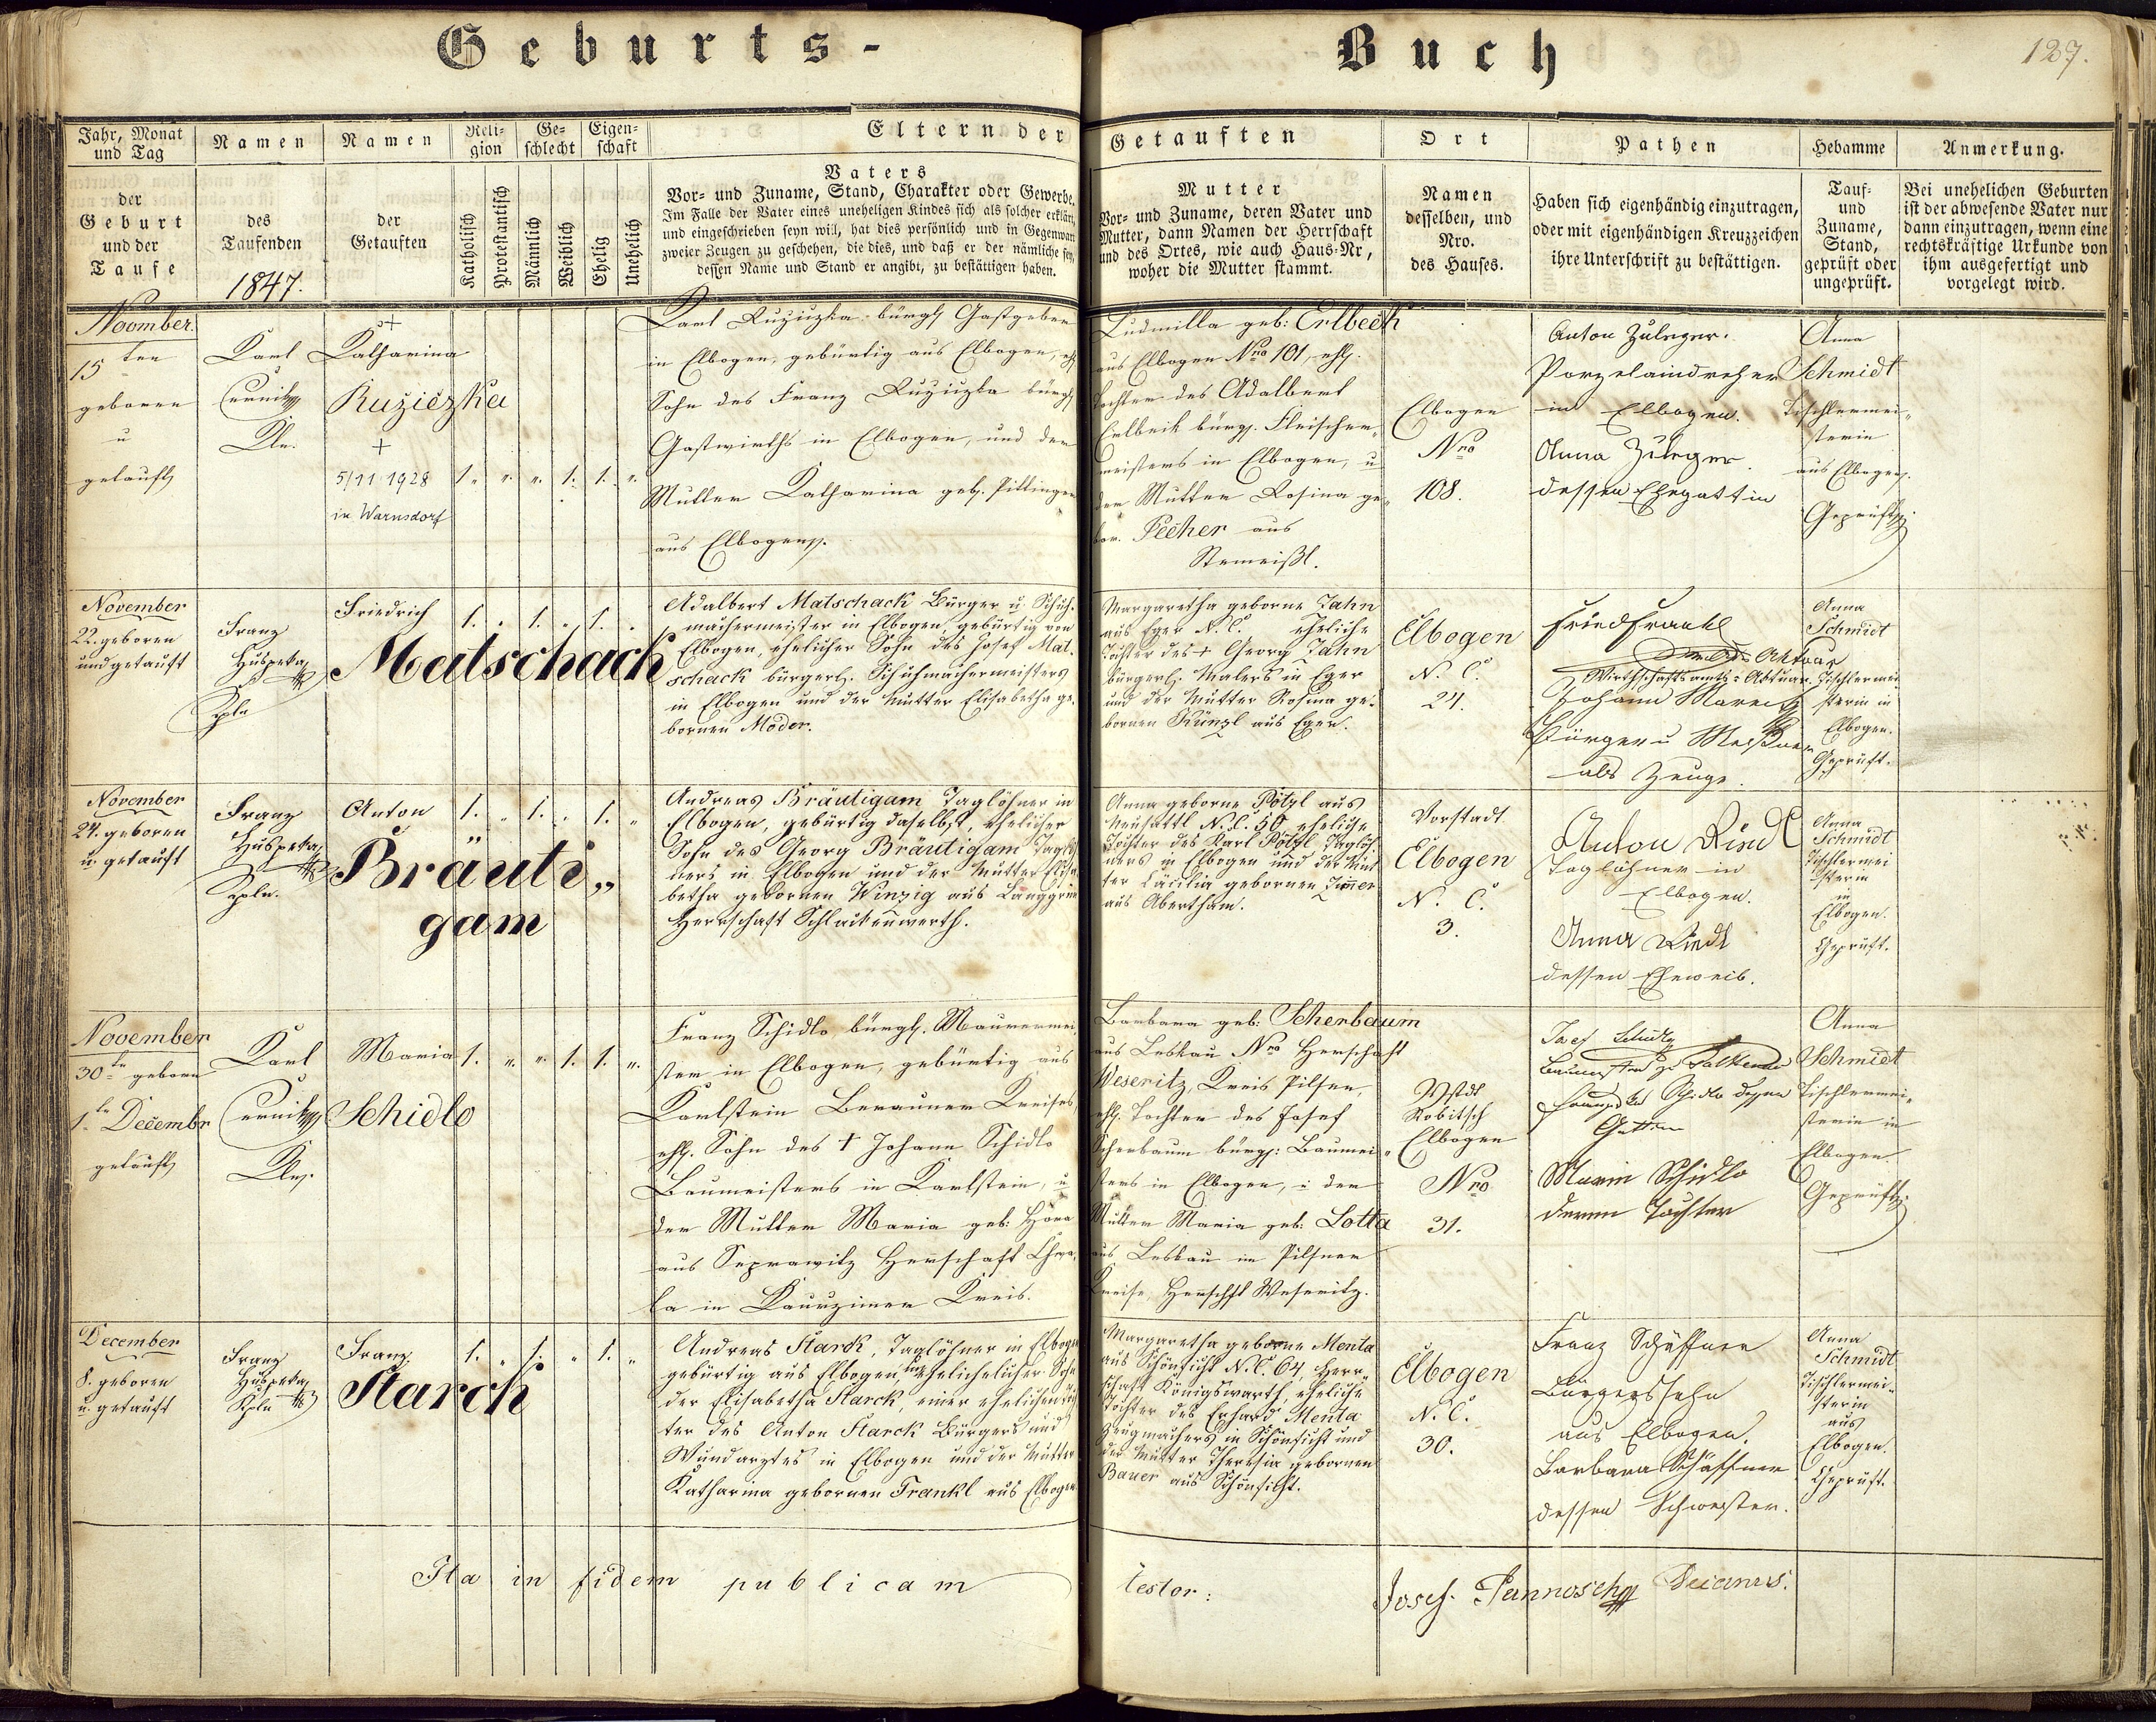 Geburts-
Buch
127.
Jahr, Monat und Tag
der Geburt und der Taufe
Namen
des Taufenden
1847.
Namen
der Getauften
Reli-
gion
Katholisch
Protestantisch
Ge-
schlecht
Männlich
Weiblich
Eigen-
schaft
Ehelig
Unehelich
Eltern der
Getauften
Vaters
Vor- und Zuname, Stand, Charakter oder Gewerbe.
Im Falle der Vater eines uneheligen Kindes sich als solcher erklärt,
und eingeschrieben seyn will, hat dies persönlich und in Gegenwart
zweier Zeugen zu geschehen, die dies, und daß er der nämliche sey,
dessen Name und Stand er angibt, zu bestättigen haben.
Mutter
Vor- und Zuname, deren Vater und
Mutter, dann Namen der Herrschaft
und des Ortes, wie auch Haus-Nr,
woher die Mutter stammt.
Ort
Namen
desselben, und
Nro.
des Hauses.
Pathen
Haben sich eigenhändig einzutragen,
oder mit eigenhändigen Kreuzzeichen
ihre Unterschrift zu bestättigen.
Hebamme
Tauf-
und
Zuname,
Stand,
geprüft oder
ungeprüft.
Anmerkung.
Bei unehelichen Geburten
ist der abwesende Vater nur
dann einzutragen, wenn eine
rechtskräftige Urkunde von
ihm ausgefertigt und
vorgelegt wird.
15 ten
geboren
u
getauft
Karl
Katharina
Ružiczka
+
5/11 1928
in Warnsdorf
1. " " 1. 1. "
in Elbogen, gebürtig aus Elbogen,
Sohn des Franz Ružiczka bürgl
Gastwirths in Elbogen, und der
Mutter Katharina geb. Pittinger
aus Elbogen.
Ludmilla geb: Erlbeck
aus Elbogen Nro 101, ehl.
Tochter des Adalbert
Erlbeck bürgl. Fleischer-
meisters in Elbogen, u
der Mutter Rosina ge-
bor. Pecher aus
Elbogen
Nro
108.
Anton Zuleger.
Porzelaindreher
in Elbogen.
Anna Zuleger.
dessen Ehegattin
Anna
Schmidt
Tischlermei-
sterin
aus Elbogen.
Geprüft
November
22. geboren
und getauft
Franz
Huspeka
Friedrich
Matschack
1. . 1. . 1. .
Adalbert Matschack Bürger u. Schuh-
machermeister in Elbogen gebürtig von
Elbogen, ehelicher Sohn des Josef Mat-
schack bürgerl. Schuhmachermeisters
in Elbogen und der Mutter Elisabetha ge-
bornen Moder.
Margaretha geborne Jahn
aus Eger N. C. eheliche
Tochter des + Georg Jahn
bürgerl. Malers in Eger
und der Mutter Rosina ge-
bornen Künzl aus Eger.
Elbogen
N. C.
24.
Wirthschaftsamts-Aktuar
Bürger u
als Zeuge.
Anna
Schmidt
Tischlermei-
sterin in
Elbogen.
Geprüft.
November
24. geboren
u. getauft
Franz
Huspeka
Anton
Bräuti„
gam
1. . 1. . 1. "
Andreas Bräutigam Taglöhner in
Elbogen, gebürtig daselbst, ehelicher
Sohn des Georg Bräutigam Taglöh-
ners in Elbogen und der Mutter Elisa-
betha gebornen Winzig aus Langgrün
Herrschaft Schlackenwerth.
Anna geborne Pötzl aus
Neusattl N. C. 50 eheliche
Tochter des Karl Pötzl Taglöh-
ners in Elbogen und der Mut-
ter Cäcilia gebornen Zimer
aus Abertham.
Vorstadt
Elbogen
N. C.
3.
Taglöhner in
Elbogen.
dessen Eheweib.
Anna
Schmidt
Tischlermei
sterin
in
Elbogen.
Geprüft.
November
30te geboren
1te Decembr
getauft
Karl
Maria
Schidlo
1. " " 1. 1. "
Franz Schidlo bürgl. Maurermei-
ster in Elbogen, gebürtig aus
Karlstein Berauner Kreises,
ehl. Sohn des + Johann Schidlo
Baumeisters in Karlstein, u
der Mutter Maria geb: Hora
in Kaurzimer Kreis.
Barbara geb: Scherbaum
aus Leskau Nro Herschaft
Weseritz, Kreis Pilsen,
ehl. Tochter des Josef
Scherbaum bürgl: Baumei-
sters in Elbogen, u der
Mutter Maria geb: Lotta
aus Leskau im Pilsner
Kreise, Herschft Weseritz.
Robitsch
Elbogen
Nro
31.
Maria Schidlo
deren Tochter
Anna
Schmidt
Tischlermei-
sterin in
Elbogen.
Geprüft
December
8. geboren
u. getauft
Franz
Huspeka
Franz
Starck
1. " 1. " 1. "
Andreas Starck, Taglöhner in Elbogen
gebürtig aus Elbogen, unehelicher Sohn
der Elisabetha Starck, einer ehelichen Toch-
ter des Anton Starck Bürgers und
Wundarztes in Elbogen und der Mutter
Katharina gebornen Frankl aus Elbogen
Margaretha geborne Menta
aus Schönficht N. C. 64, Herr-
schaft Königswarth, eheliche
Tochter des Erhard Menta
Zeugmachers in Schönficht und
der Mutter Theresia gebornen
Bauer aus Schönficht.
Elbogen
N. C.
30.
Franz Schäffner
Bürgerssohn
aus Elbogen.
Barbara Schäffner
dessen Schwester.
Anna
Schmidt
Tischlermei-
sterin
aus
Elbogen.
Geprüft.
Ita in fidem publicam
testor: